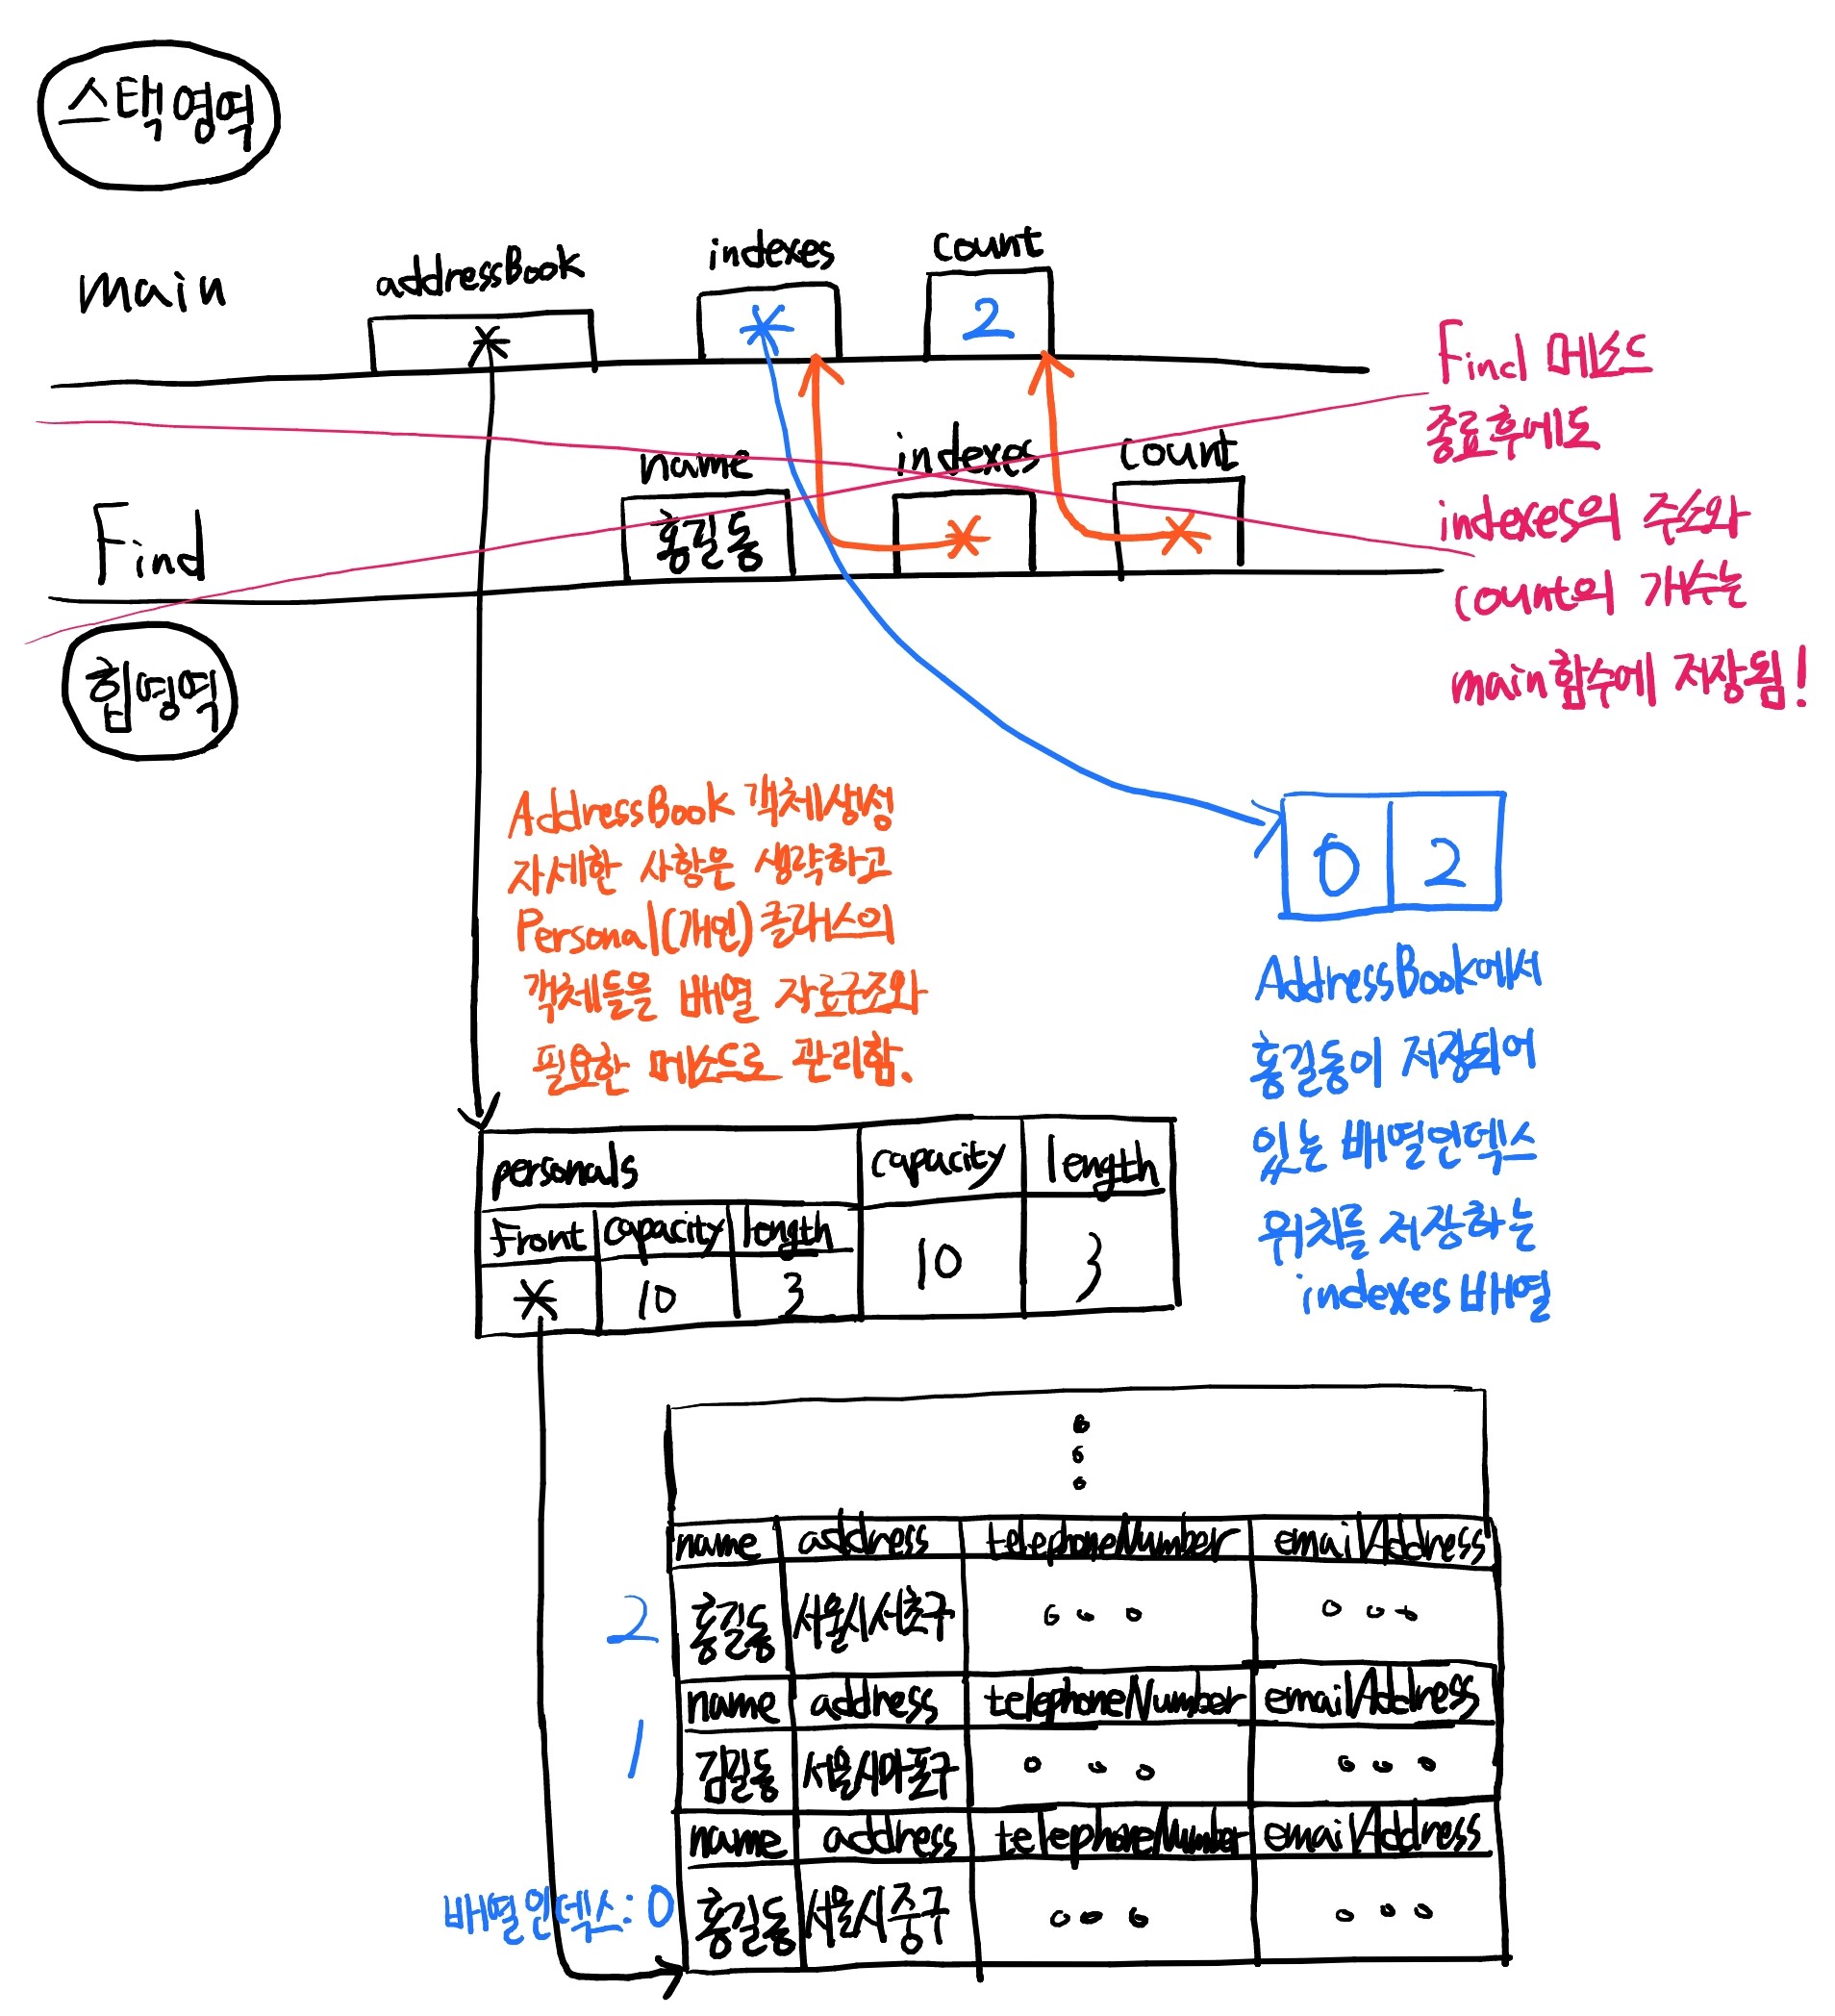 스택영역
main
addressBook
*
indexes
*
count
2
Find
name
홍길동
indexes
*
count
*
Find 메소드
종료후에도
indexes의 주소와
count의 개수는
main함수에 저장됨!
힙영역
AddressBook 객체생성
자세한 사항은 생략하고
Personal(개인) 클래스의
객체들을 배열 자료구조와
필요한 메소드로 관리함.
0 2
AddressBook에서
홍길동이 저장되어
있는 배열인덱스
위치를 저장하는
indexes 배열
personals capacity length
front capacity length
* 10 3
10 3
name address telephoneNumber emailAddress
2 홍길동 서울시서초구
name address telephoneNumber emailAddress
1 김길동 서울시마포구
name address telephoneNumber emailAddress
배열인덱스: 0 홍길동 서울시중구